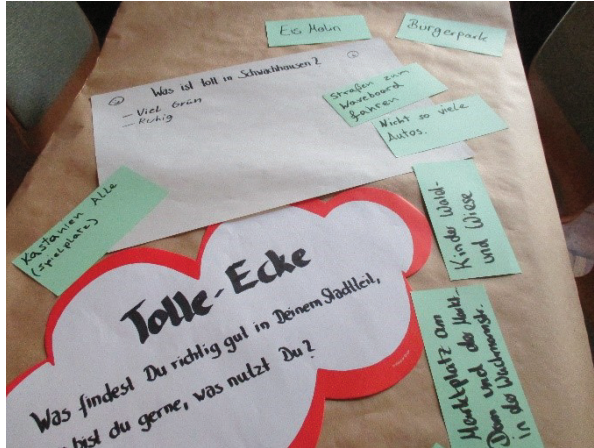 Eis Molin
Bürgerpark
Was ist toll in Schwachhausen?
- Viel Grün
- Ruhig
Straßen zum
Waveboard
fahren
Nicht so viele
Autos.
Kastanien Alle
(Spielplatz)
Kinder Wald-
und Wiese
Tolle-Ecke
Was findest Du richtig gut in Deinem Stadtteil,
bist du gerne, was nutzt Du?
Marktplatz am
Dom und der Markt
in der Wachmannstr.